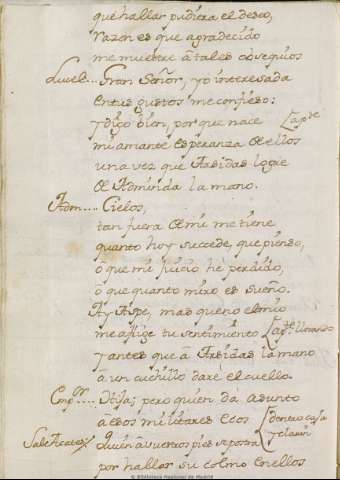 que hallar pudiera el deseo,
razon es que agradecido
me muestre â tales obsequios
Lucel... Gran Señor, yo interesada
en tus gustos me confieso:
y digo bien, porque nace (ap.te
mi amante esperanza de ellos
una vez que Arsidas logre
de Adminda la mano.
Adm.... Cielos,
tan fuera de mi me tiene
quanto hoy succede, que pienso,
ô que mi juicio hè perdido,
ô que quanto miro es sueño.
Ay Aspe, mas que no el mio
me aflige tu sentimiento (ap.te llorando
y antes que â Arsidas la mano
â un cuchillo daré el cuello.
Emp.or.... Hija; pero quien da asunto
â esos militares ecos (dentro caja
y clarin
Sale Acates quien â vuestros pies se postra
por hallar su colmo en ellos
Biblioteca Nacional de Madrid